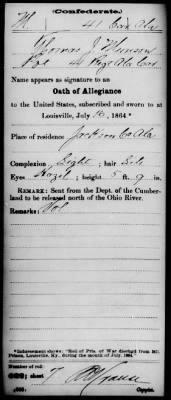 (Confederate.)
M 4 Cav Ala
Thomas J.
Pvt 4 Regt Ala Cav
Name appears as signature to an
Oath of Allegiance
to the United States, subscribed and sworn to at
Louisville, July 16, 1864*
Place of residence Jackson Co Ala
Complexion Light; hair
Eyes Hazel; height 5 ft. 9 in.
REMARK: Sent from the Dept. of the Cumber-
land to be released north of the Ohio River.
Remarks: Vol
*Indorsement shows: "Roll of Pris. of War discharged from Mil.
Prison, Louisville, Ky., during the month of July, 1864."
Number of roll:
sheet 7
Copyist.